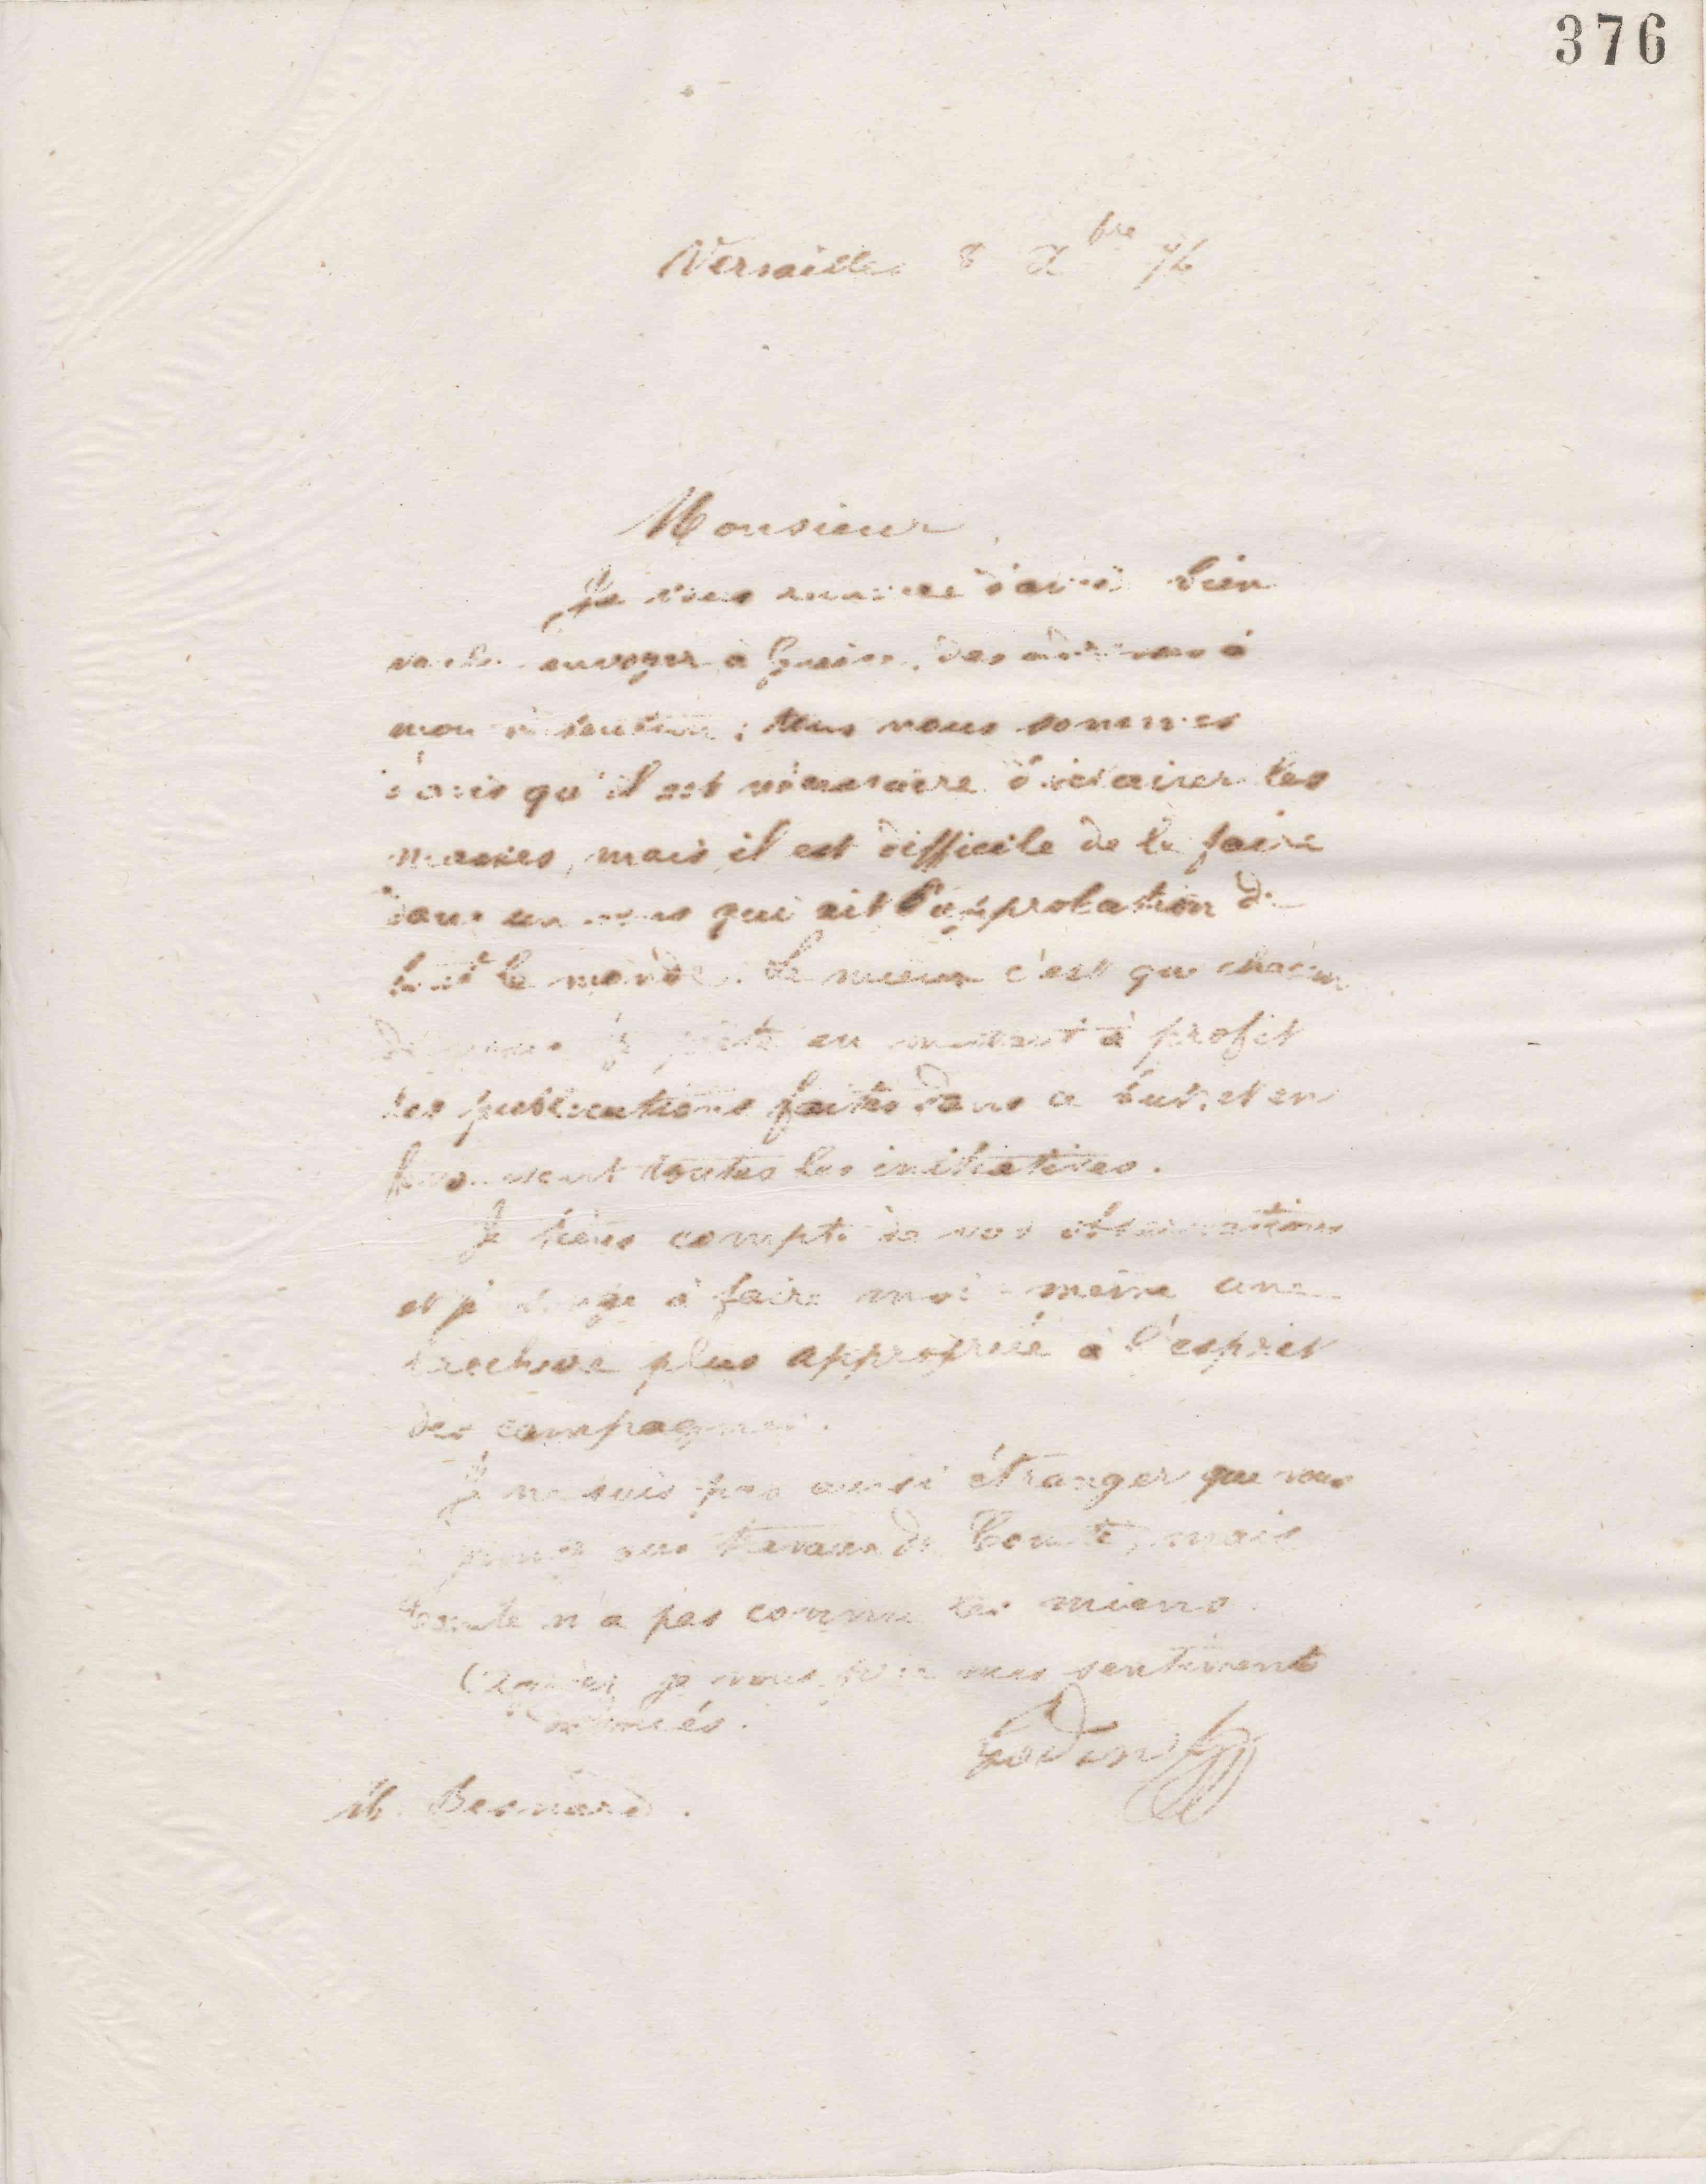 376
Versailles 8 Xbre 76
Monsieur,
Je vous remercie d'avoir bien
voulu envoyer à Guise, des adresses à
mon intention ; tous nous sommes
d'avis qu'il est nécessaire d'éclairer les
masses, mais il est difficile de le faire
dans un sens qui ait l'approbation de
tout le monde. Le mieux c'est que chacun
de nous s'y prête en mettant à profit
les publications faites dans ce but, et en
favorisant toutes les initiatives.
Je tiens compte de vos observations
et je songe à faire moi-même une
brochure plus appropriée à l'esprit
des campagnes.
Je ne suis pas aussi étranger que vous
pensez aux travaux de Comte, mais
Comte n'a pas connu les miens.
Agréez je vous prie mes sentiments
dévoués.
Godin
M. Besnard.